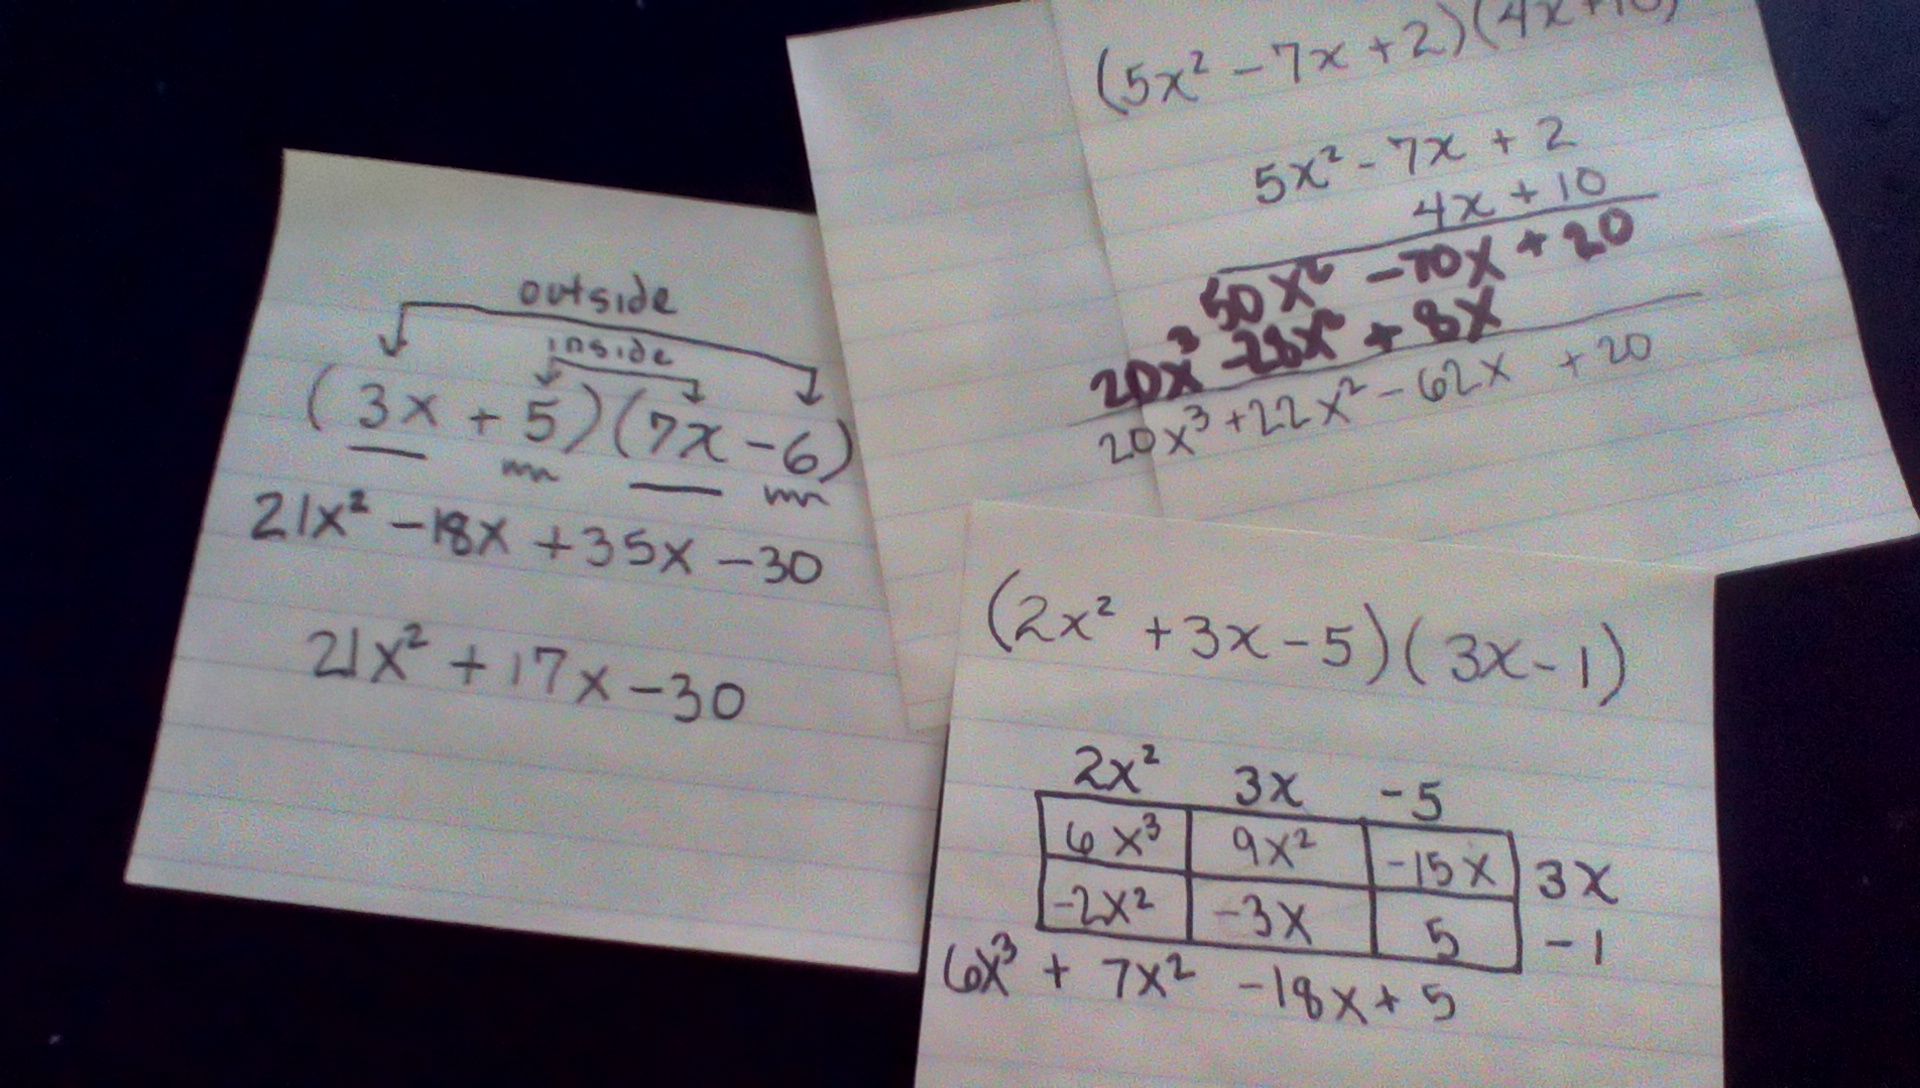 outside
inside
(3x + 5)(7x - 6)
21x² - 18x + 35x - 30
21x² + 17x - 30
(5x² - 7x + 2)(4x + 10)
5x² - 7x + 2
4x + 10
50x² - 70x + 20
20x³ - 28x² + 8x
20x³ + 22x² - 62x + 20
(2x² + 3x - 5)(3x - 1)
2x² 3x -5
6x³ 9x² -15x 3x
-2x² -3x 5 -1
6x³ + 7x² - 18x + 5